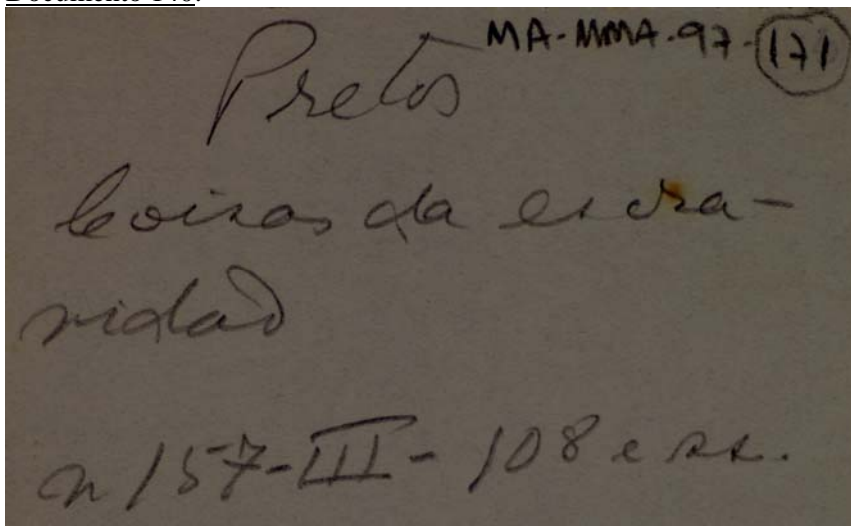 MA-MMA-97-171
Pretos
Coisas da escra-
vidão
n 157-III-108 e ss.